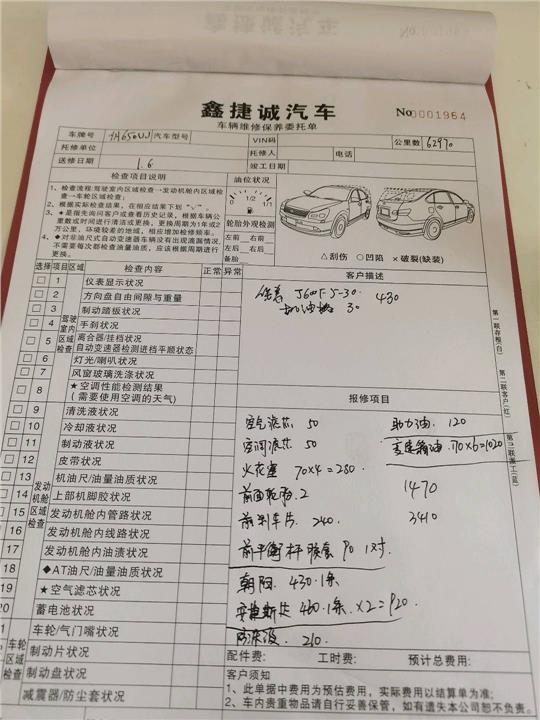 鑫捷诚汽车
No 0001964
车辆维修保养委托单
车牌号 汽车型号 VIN码 公里数 62970
托修单位 托修人 电话
送修日期 1.6 竣工日期
检查项目说明 油位状况
1、检查流程:驾驶室内区域检查→发动机舱内区域检查→车轮区域检查;
2、根据实际检查结果,在相应结果下划“√”。
3、★是指先询问客户或查看历史记录,根据车辆公里数或时间进行清洁或更换,更换周期为1年或2万公里,环境较差的地域,相应增加检修频率。
4、◆对非油尺式自动变速器车辆没有出现泄漏情况,不需要每次都检查油量油质,应该根据周期进行更换。
0 1/2 1/1
轮胎外观检测
左前 右前
左后 右后
备胎
△刮伤 ○凹陷 ×破裂(缺装)
选择 项目区域 检查内容 正常 异常
客户描述
5-30 430
30
驾驶室内区域检查
1 仪表显示状况
2 方向盘自由间隙与重量
3 制动踏板状况
4 手刹状况
5 离合器/挂档状况
自动变速器检测进档平顺状态
6 灯光/喇叭状况
7 风窗玻璃洗涤状况
8 ★空调性能检测结果
(需要使用空调的天气)
发动机舱区域检查
9 清洗液状况
10 冷却液状况
11 制动液状况
12 皮带状况
13 机油尺/油量油质状况
14 上部机脚胶状况
15 发动机舱内管路状况
16 发动机舱内线路状况
17 发动机舱内油渍状况
18 ◆AT油尺/油量油质状况
19 ★空气滤芯状况
20 蓄电池状况
车轮区域检查
车轮/气门嘴状况
制动片状况
制动盘状况
减震器/防尘套状况
报修项目
空气滤芯 50 助力油 120
空调滤芯 50 变速箱油 170×6=1020
火花塞 70×4=280
前面轮胎 2 1470
前刹车片 240 3410
前平衡杆胶套 90 1对
朝阳 430·1条
安捷斯达 460·1条 ×2=920
防冻液 210
第一联存根(白)
第二联客户(红)
第三联派工(蓝)
配件费: 工时费: 预计总费用:
客户须知
1、此单据中费用为预估费用,实际费用以结算单为准;
2、车内贵重物品请自行妥善保管,如有遗失本公司恕不负责。